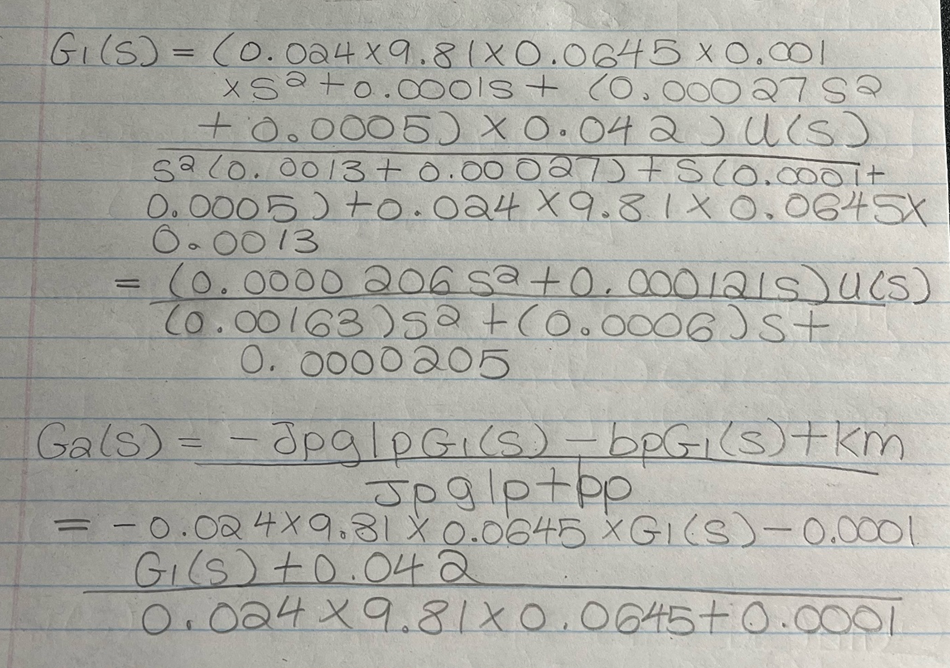 G1(S) = (0.024×9.81×0.0645×0.001
×S²+0.0001S+ (0.00027S2
+0.0005)×0.042)U(S)
S²(0.0013+0.00027)+S(0.0001+
0.0005)+0.024×9.81×0.0645×
0.0013
= (0.0000206S²+0.000121S)U(S)
(0.00163)S²+(0.0006)S+
0.0000205
G2(S) = -JpglpG1(S)-bpG1(S)+km
Jpglp+bp
= -0.024×9.81×0.0645×G1(S)-0.0001
G1(S)+0.042
0.024×9.81×0.0645+0.0001